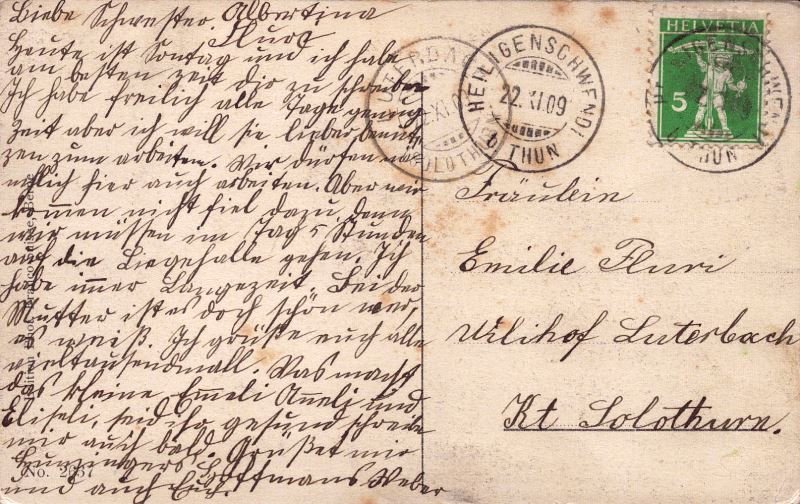 Liebe Schwester Albertina
Fluri
Heute ist Sontag und ich habe
am besten zeit dir zu schreiben
Ich habe freilich alle Tage genug
zeit aber ich will sie lieber benut
zen zum arbeiten. Wir dürfen nä
mlich hier auch arbeiten. Aber wir
kommen nicht fiel dazu denn
wir müssen im Tag 5 Stunden
auf die Liegehalle gehen. Ich
habe imer Langezeit. Bei der
Mutter ist es doch schön wer,
es weiß. Ich grüße euch alle
vieltausendmall. Was macht
das kleine Emeli Anneli und
Eliseli, seid ihr gesund schreibe
mir auch bald. Grüßet mir
und auch
HELVETIA
5
HEILIGENSCHWENDI
22.XI.09
(THUN)
Fräulein
Emilie Fluri
Wilihof Luterbach
Kt Solothurn.
No. 2057